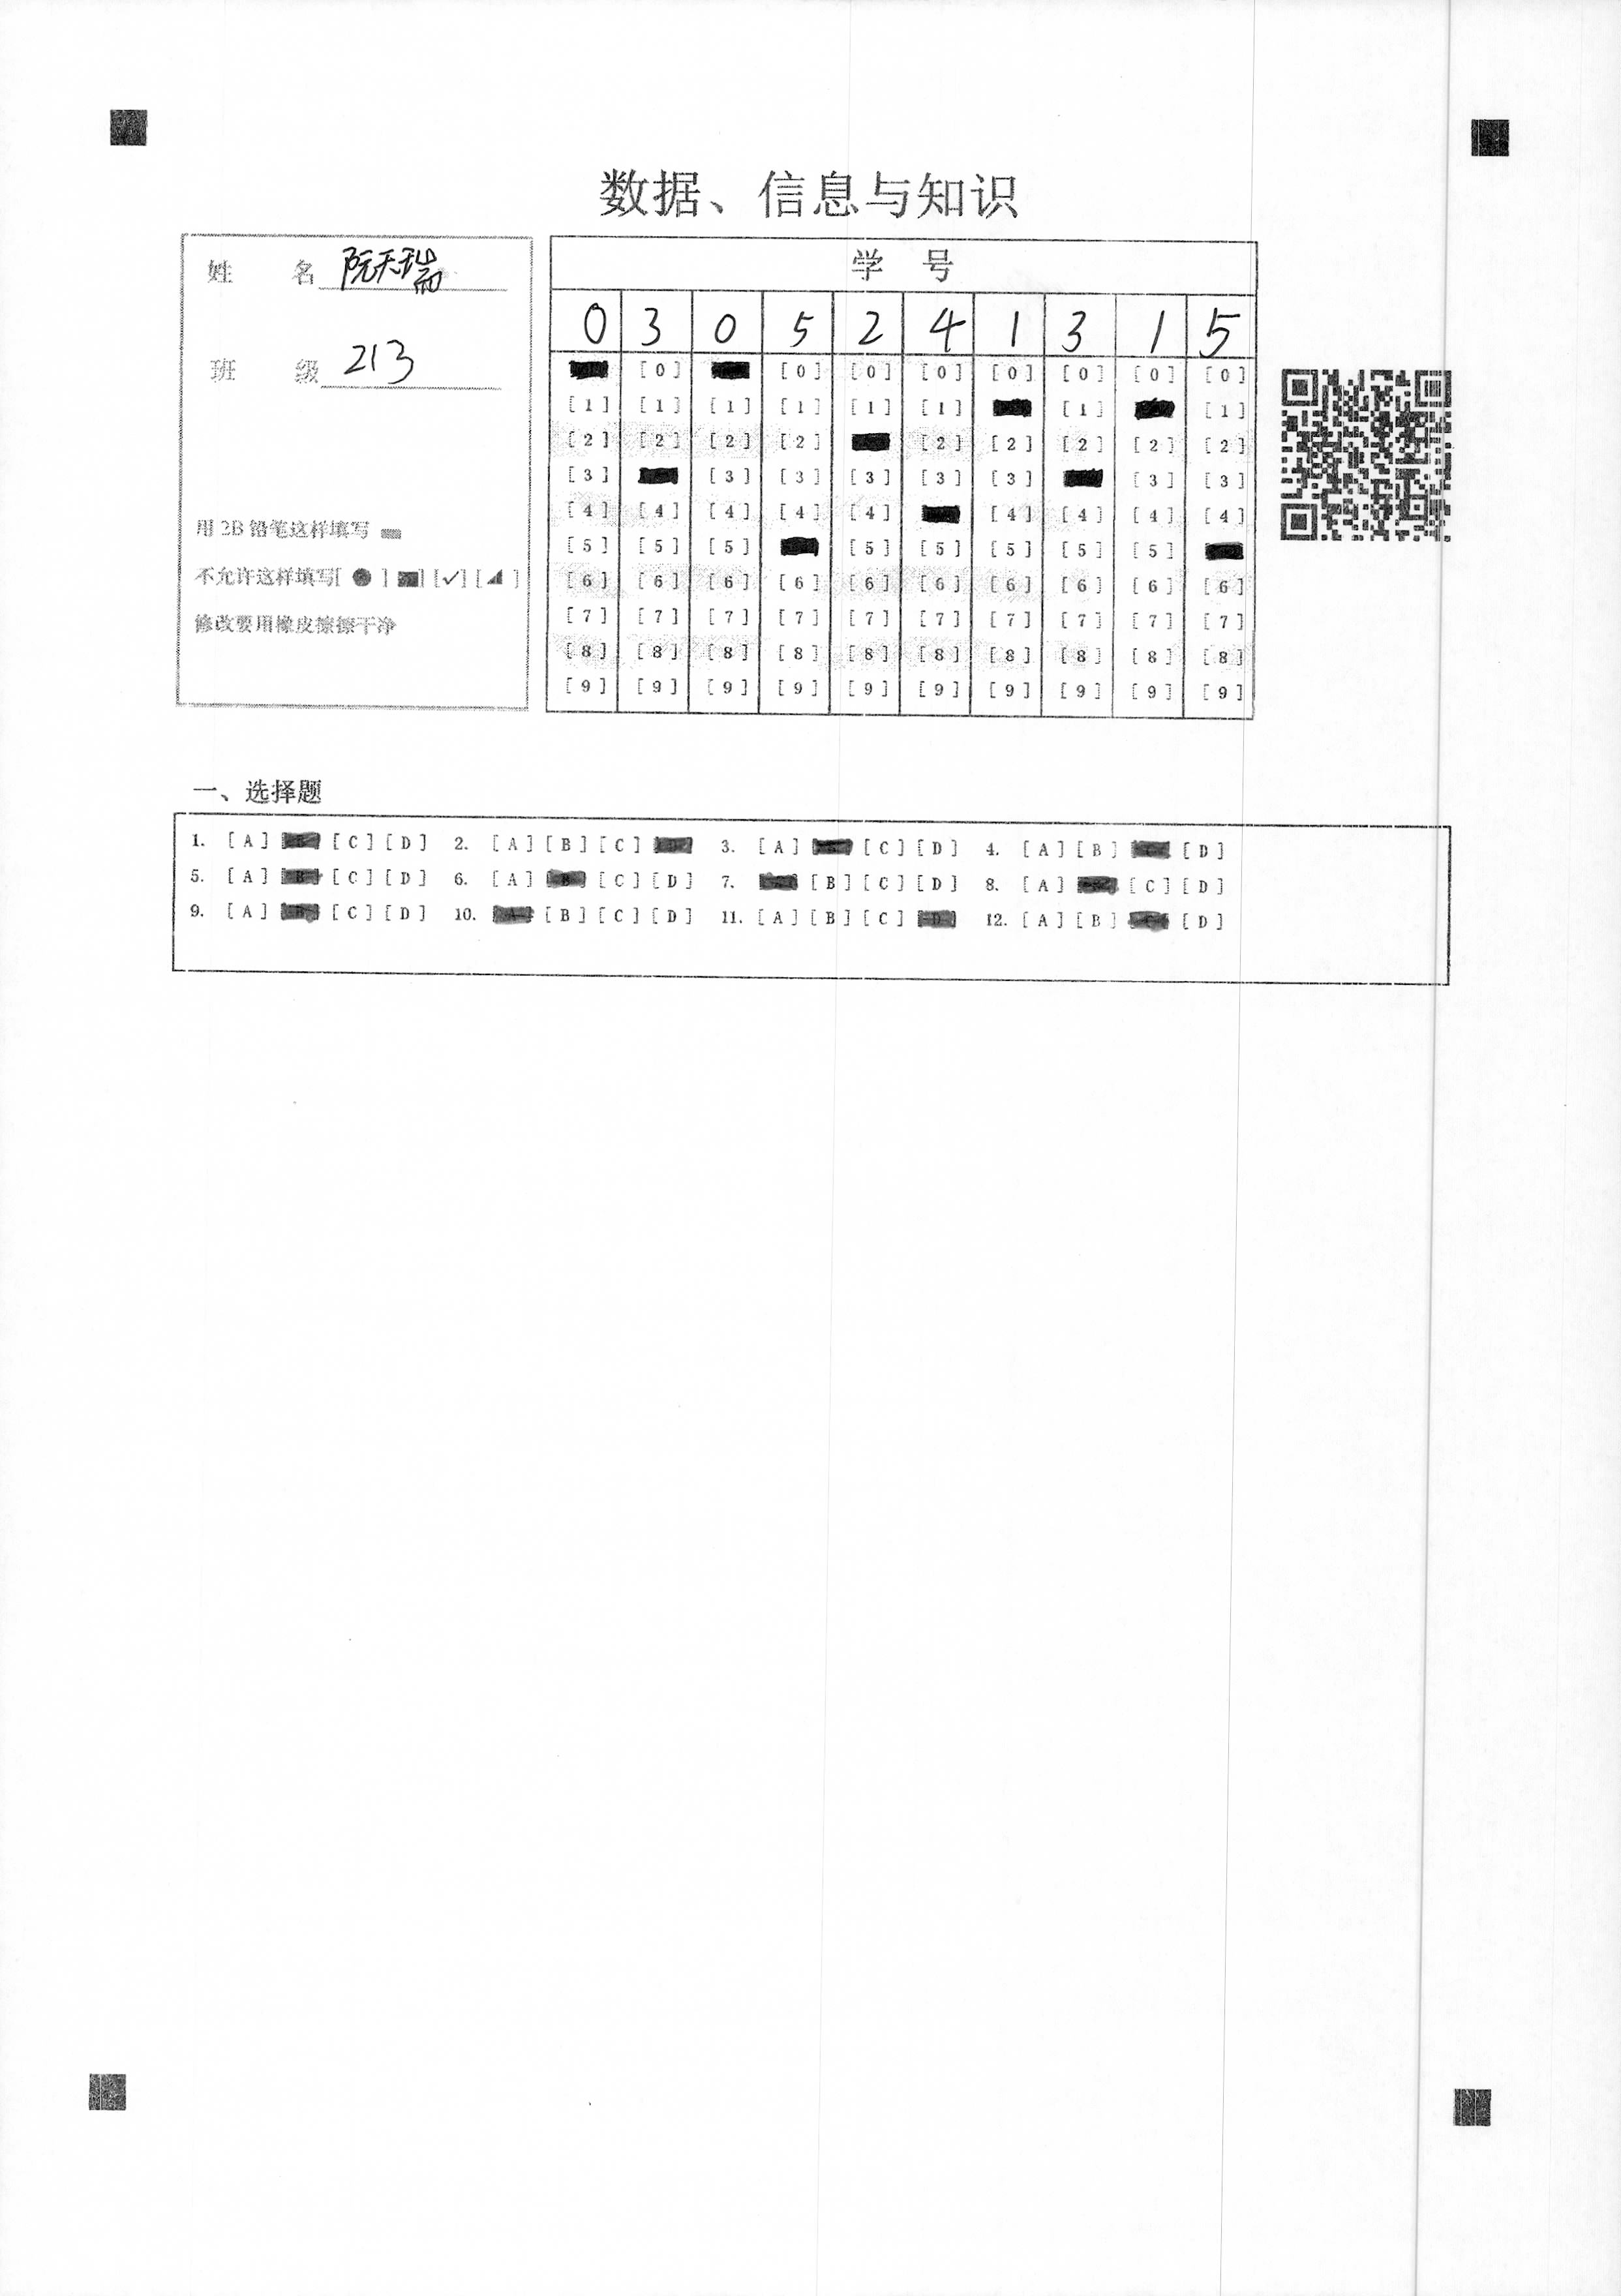 数据、信息与知识
姓 名 阮天瑞
班 级 213
用 2B 铅笔这样填写
不允许这样填写[ ● ] [■] [✓] [◢ ]
修改要用橡皮擦擦干净
学 号
0 3 0 5 2 4 1 3 1 5
[0] [0] [0] [0] [0] [0] [0] [0]
[1] [1] [1] [1] [1] [1] [1] [1]
[2] [2] [2] [2] [2] [2] [2] [2] [2]
[3] [3] [3] [3] [3] [3] [3] [3]
[4] [4] [4] [4] [4] [4] [4] [4] [4]
[5] [5] [5] [5] [5] [5] [5] [5]
[6] [6] [6] [6] [6] [6] [6] [6] [6] [6]
[7] [7] [7] [7] [7] [7] [7] [7] [7] [7]
[8] [8] [8] [8] [8] [8] [8] [8] [8] [8]
[9] [9] [9] [9] [9] [9] [9] [9] [9] [9]
一、选择题
1. [A] [C] [D] 2. [A] [B] [C] 3. [A] [C] [D] 4. [A] [B] [D]
5. [A] [C] [D] 6. [A] [C] [D] 7. [B] [C] [D] 8. [A] [C] [D]
9. [A] [C] [D] 10. [B] [C] [D] 11. [A] [B] [C] 12. [A] [B] [D]